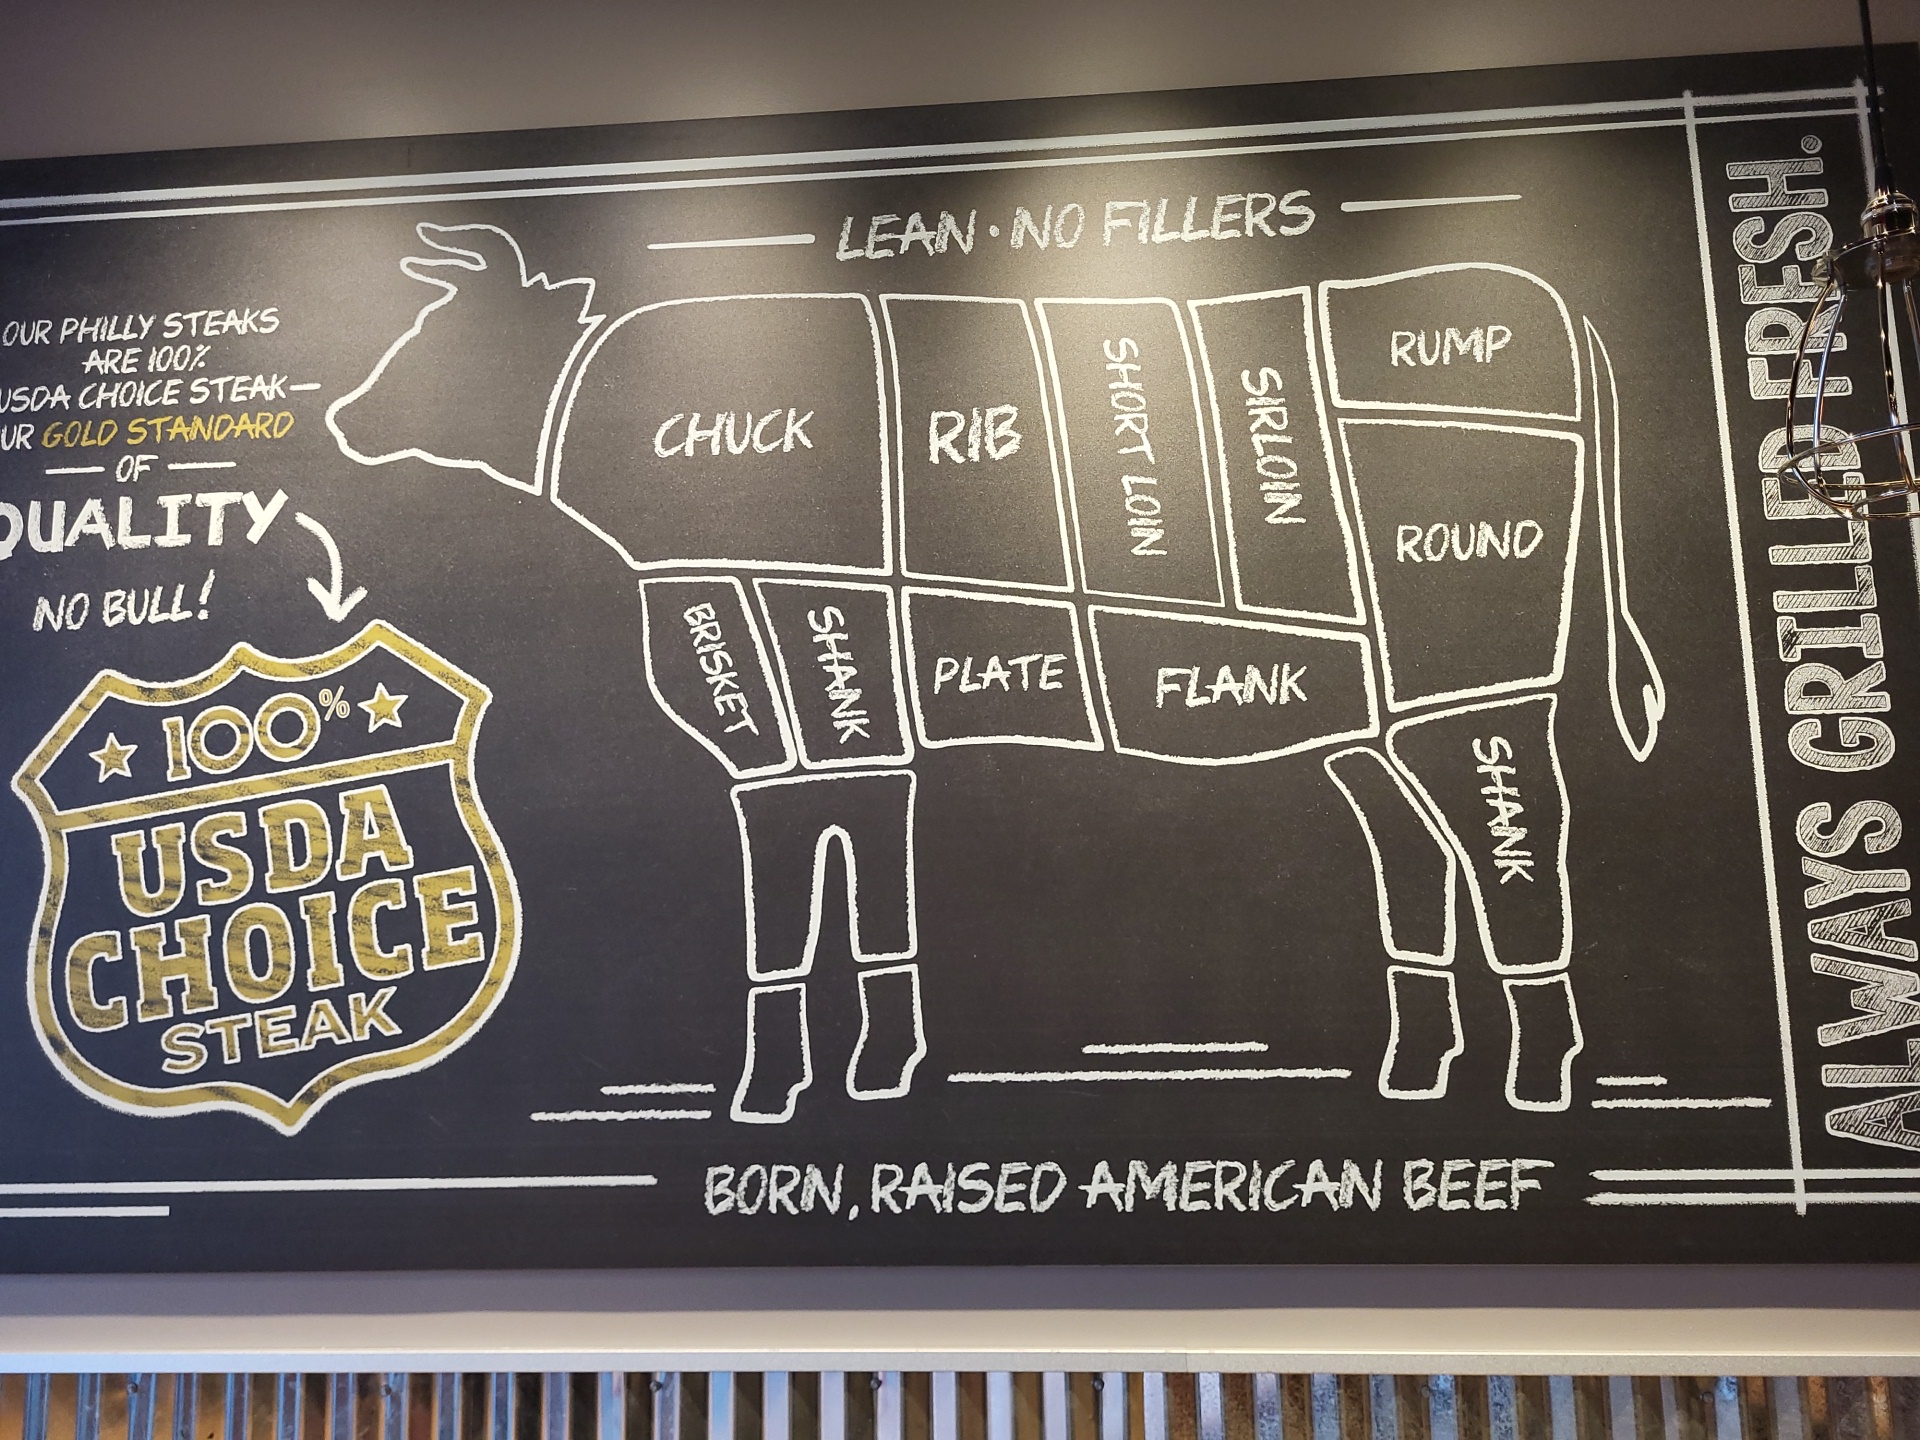 LEAN • NO FILLERS
OUR PHILLY STEAKS
ARE 100%
USDA CHOICE STEAK—
UR GOLD STANDARD
OF
QUALITY
NO BULL!
100%
USDA
CHOICE
STEAK
CHUCK
RIB
SHORT LOIN
SIRLOIN
RUMP
ROUND
BRISKET
SHANK
PLATE
FLANK
SHANK
BORN, RAISED AMERICAN BEEF
ALWAYS GRILLED FRESH.